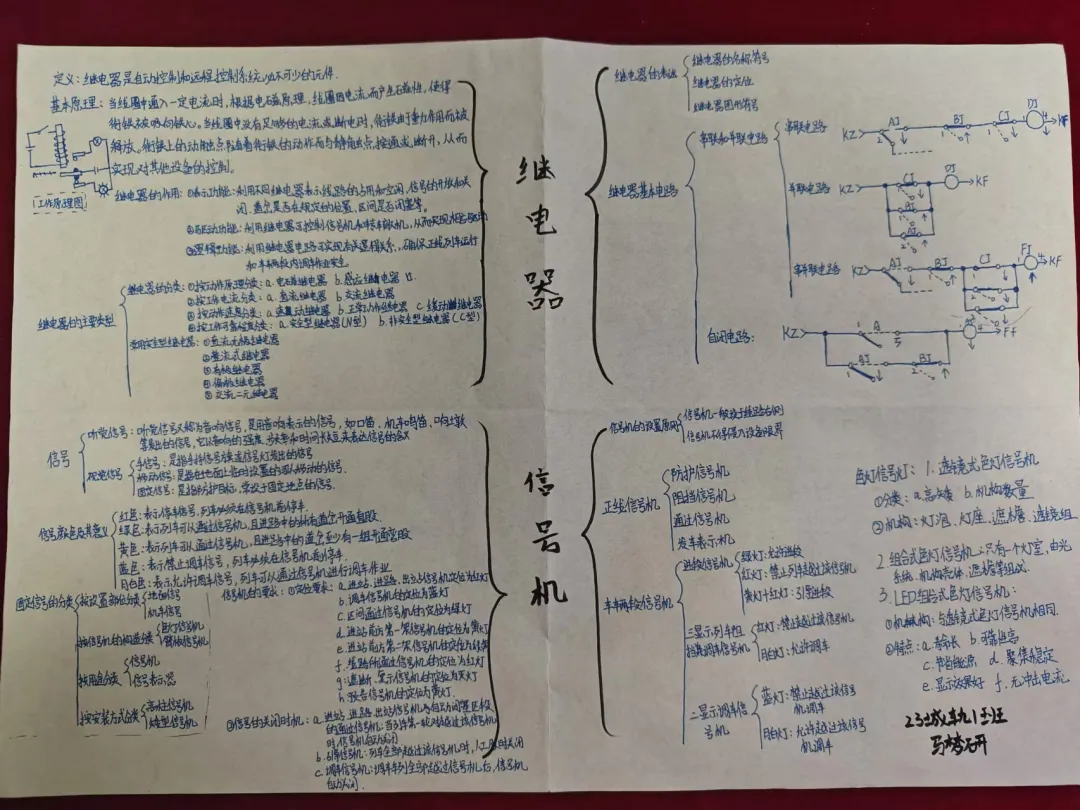 定义：继电器是自动控制和远程控制系统必不可少的元件.
基本原理：当线圈中通入一定电流时，根据电磁原理，线圈因电流而产生磁性，使得
衔铁被吸向铁心。当线圈中没有足够的电流或断电时，衔铁由于重力作用而被
释放，衔铁上的动触点随着衔铁的动作而与静触点接通或断开，从而
实现对其他设备的控制。
工作原理图
继电器的作用：①表示功能：利用不同继电器表示线路的占用和空闲，信号的开放和关
闭，道岔是否在规定的位置，区间是否闭塞等。
②驱动功能：利用继电器可控制信号机和转辙机，从而实现
③逻辑功能：利用继电器电路可实现有关逻辑关系，确保正线列车运行
和车辆段内调车作业安全
继电器的主要类型
继电器的分类：①按动作原理分类：a.电磁继电器 b.感应继电器
②按工作电流分类：a.直流继电器 b.交流继电器
③按动作速度分类：a.速动继电器 b.正常动作继电器 c.缓动继电器
④按工作可靠程度分类：a.安全型继电器(N型) b.非安全型继电器(C型)
常用安全型继电器：①直流无极继电器
②整流式继电器
③有极继电器
④偏极继电器
⑤交流二元继电器
继
电
器
继电器的表述
继电器的名称符号
继电器的定位
继电器图形符号
继电器基本电路
串联和并联电路
串联电路
KZ AJ BJ CJ DJ KF
并联电路
KZ CJ BJ AJ DJ KF
串并联电路
KZ AJ BJ CJ FJ KF
自闭电路：
KZ A AJ BJ FF
信号
听觉信号：听觉信号又称为音响信号，是用音响表示的信号，如口笛、机车鸣笛、响墩
等发出的信号，它以音响的强度、频率和时间长短来表达信号的含义
视觉信号
手信号：是指手持信号旗或信号灯发出的信号
移动信号：是指在地面上临时设置的可以移动的信号.
固定信号：是指防护目标，常设于固定地点的信号.
信号颜色及其意义
红色：表示停车信号，列车必须在信号机前停车.
绿色：表示列车可以通过信号机，且进路中的所有道岔开通直股.
黄色：表示列车可以通过信号机，且进路中的道岔至少有一组开通弯股
蓝色：表示禁止调车信号，列车必须在信号机前停车.
月白色：表示允许调车信号，列车可以通过信号机进行调车作业
固定信号的分类
按设置部位分类
地面信号
机车信号
按信号机的构造分类
色灯信号机
臂板信号机
按用途分类
信号机
信号表示器
按安装方式分类
高柱信号机
矮型信号机
信号机的要求：①定位要求：a.进站、进路、出站信号机定位为红灯
b.调车信号机的定位为蓝灯
c.区间通过信号机的定位为绿灯
d.进站前方第一架信号机的定位为黄灯
e.进站前方第一架信号机的定位为绿黄
f.线路所通过信号机的定位为红灯
g.遮断、复示信号机的定位为灭灯
h.预告信号机的定位为黄灯.
②信号的关闭时机：a.进站、进路、出站信号机与自动闭塞区段
的通过信号机：当列车第一轮对越过该信号机
时,信号机自动关闭
b.引导信号机：列车全部越过该信号机时，人工及时关闭
c.调车信号机：调车车列全部越过信号机后，信号机
自动关闭.
信
号
机
信号机的设置原则
信号机一般设于线路右侧
信号机不得侵入设备限界
正线信号机
防护信号机
阻挡信号机
通过信号机
发车表示机
车辆段信号机
进段信号机
绿灯：允许进段
红灯：禁止列车越过该信号机
黄灯+红灯：引导进段
三显示列车阻
挡兼调车信号机
红灯：禁止越过该信号机
月白灯：允许调车
二显示调车信
号机
蓝灯：禁止越过该信号
机调车
月白灯：允许越过该信号
机调车
色灯信号灯：1.透镜式色灯信号机
①分类：a.高矮 b.机构数量
②机构：灯泡、灯座、遮檐、透镜组
2.组合式色灯信号机：只有一个灯室，由光
系统、机构壳体、遮檐等组成.
3.LED组合式色灯信号机：
①机构：与透镜式色灯信号机相同.
②特点：a.寿命长 b.可靠性高
c.节省能源 d.聚焦稳定
e.显示效果好 f.无冲击电流
23城轨1班
马梦研